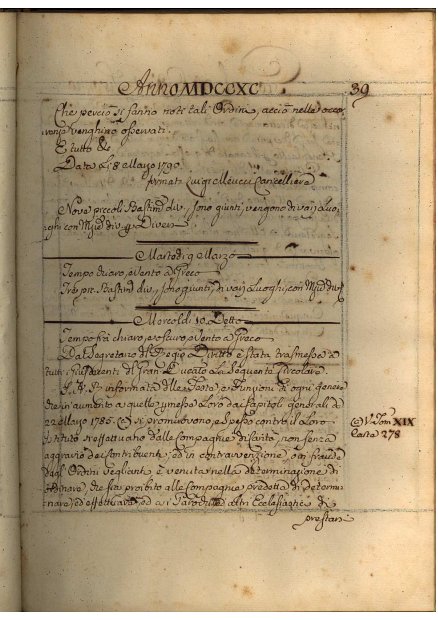 Anno MDCCXC 39
Che perciò si fanno noti tali Ordini, acciò nelle occor
renze venghino osservati.
E tutto &c
Data li 8 Marzo 1790.
firmat. Luigi Meucci Cancelliere
Nove piccoli Bastim. div. sono giunti, vengono di varj Luo,
ghi con Mjd. div. p. Diversi
Martedì 9 Marzo
Tempo buaro, e Vento a Greco
Tre pic. Bastim. div., sono giunti, di varj Luoghi, con Mjd. div.
Mercoldì 10 Detto
Tempo frà chiaro, e oscuro, e Vento a Greco
Dal Segretario del Regio Diritto è stata trasmessa a
tutti i Giusdicenti di Gran Ducato la Seguente Circolare.
S. A. R. informata delle Feste, e Funzioni di ogni genere
che in aumento a quelle permesse Loro dai Capitoli generali de
22 Maggio 1785. (a) si promuovono, e spesso contro il Loro
(a) V. Tom XIX
Carta 278
Istituto si effettuano dalle Compagnie di Carità, non senza
aggravio dei Contribuenti, ed in contravvenzione, o in fraude
dagl' Ordini veglianti, è venuta nella determinazione di
Ordinare, che sia proibito alle Compagnie predette di determi-
nare, ed effettuare, ed a i Parochi, ed altri Ecclesiastici di
prestar-